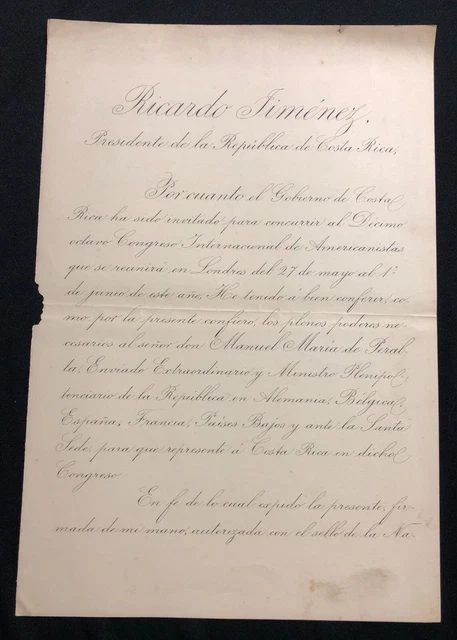 Ricardo Jiménez.
Presidente de la República de Costa Rica,
Por cuanto el Gobierno de Costa
Rica ha sido invitado para concurrir al Décimo
octavo Congreso Internacional de Americanistas
que se reunirá en Londres del 27 de mayo al 1º
de junio de este año, He tenido á bien conferir, co-
mo por la presente confiero, los plenos poderes ne-
cesarios al señor don Manuel María de Peral-
ta, Enviado Extraordinario y Ministro Plenipo-
tenciario de la República en Alemania, Bélgica,
España, Francia, Países Bajos y ante la Santa
Sede, para que represente á Costa Rica en dicho
Congreso
En fe de lo cual expido la presente, fir-
mada de mi mano, autorizada con el sello de la Na-